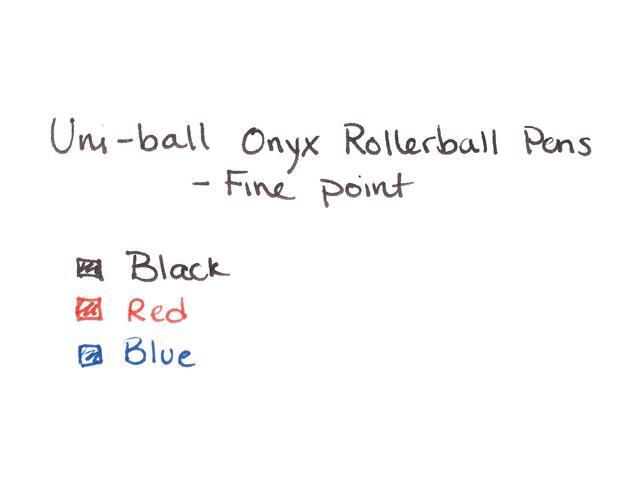 Uni-ball Onyx Rollerball Pens
- Fine point
Black
Red
Blue